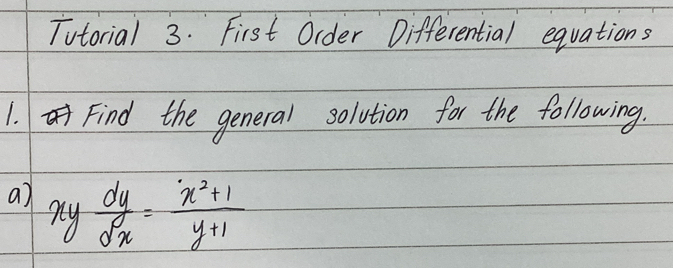 Tutorial 3. First Order Differential equations
1. Find the general solution for the following.
a) xy dy/dx = x²+1/y+1